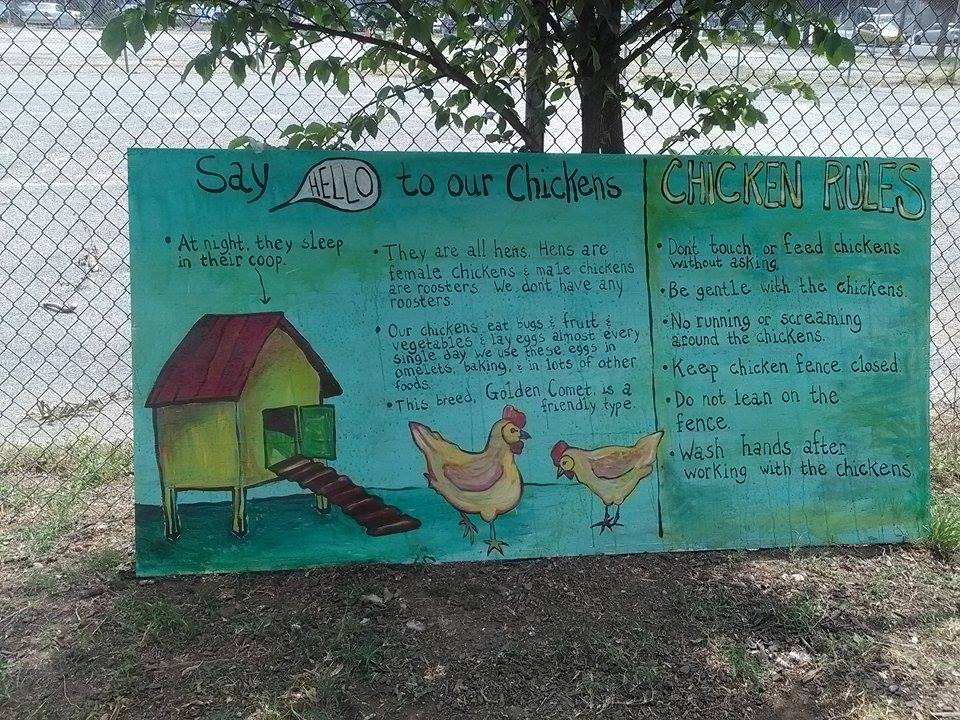 Say HELLO to our Chickens
• At night, they sleep
in their coop.
• They are all hens. Hens are
female chickens & male chickens
are roosters. We dont have any
roosters.
• Our chickens eat bugs & fruit &
vegetables & lay eggs almost every
single day. We use these eggs in
omelets, baking, & in lots of other
foods.
• This breed, Golden Comet, is a
friendly type.
CHICKEN RULES
• Dont touch or feed chickens
without asking
• Be gentle with the chickens.
• No running or screaming
around the chickens.
• Keep chicken fence closed.
• Do not lean on the
fence.
• Wash hands after
working with the chickens